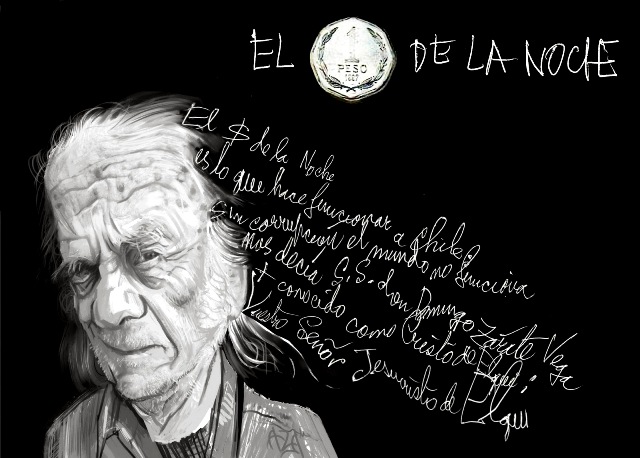 EL 1 PESO 1987 DE LA NOCHE
El $ de la Noche
es lo que hace funcionar a Chile
Sin corrupción el mundo no funciona
Nos decía S.S. don Domingo Zárate Vega
+ conocido como Cristo de Elqui:
Nuestro Señor Jesucristo de Elqui